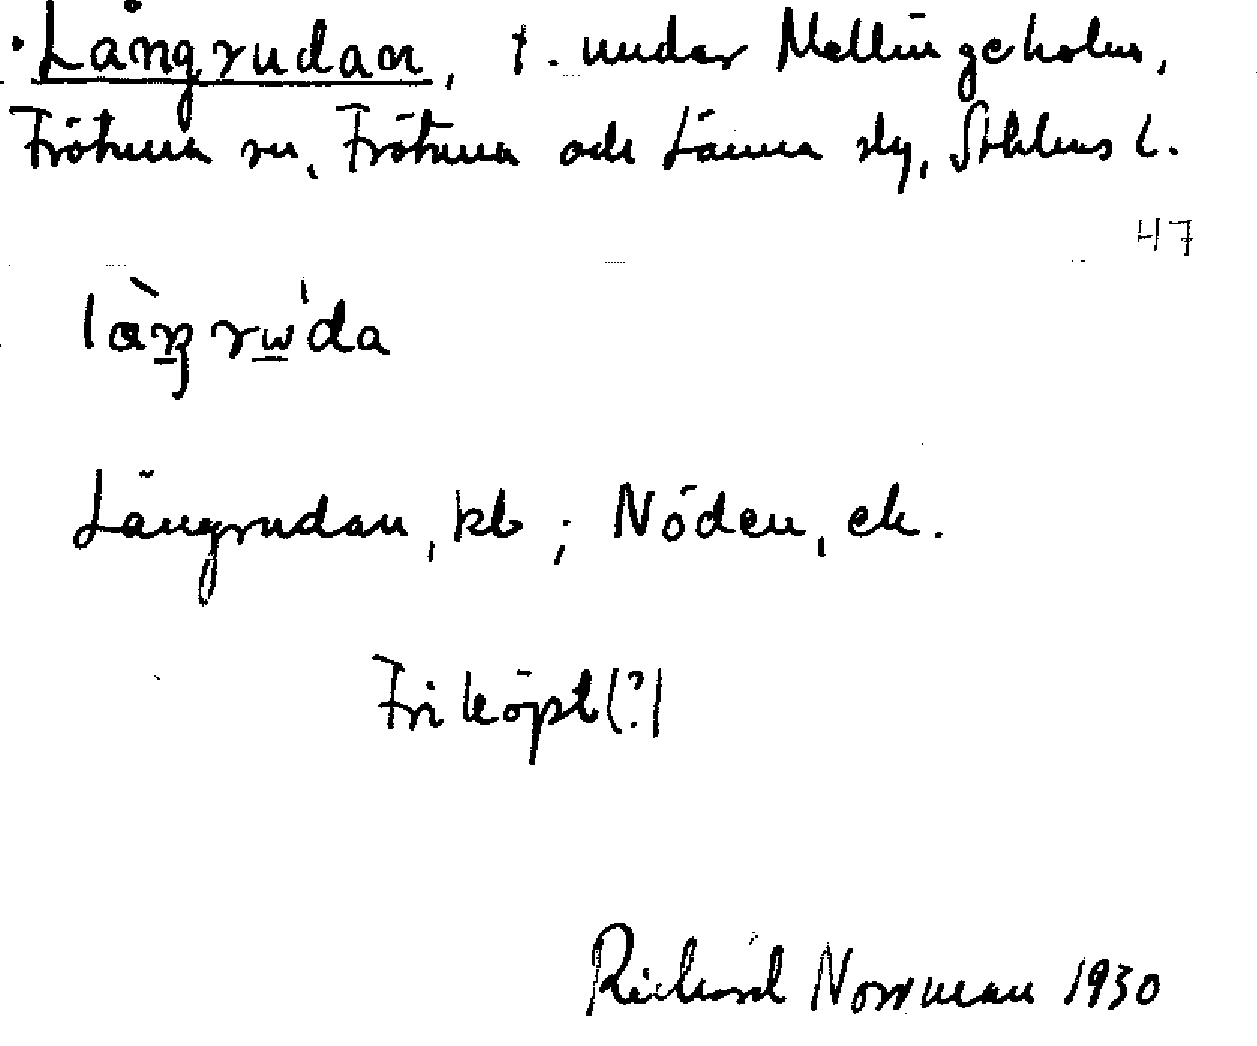 Långrudan, t. under Mellingeholm,
Frötuna sn, Frötuna och Länna slg, Sthlms l.
47
làŋrẁ'da
Långrudan, kb ; Nöden, ek.
Friköpt (?)
Richard Norrman 1930